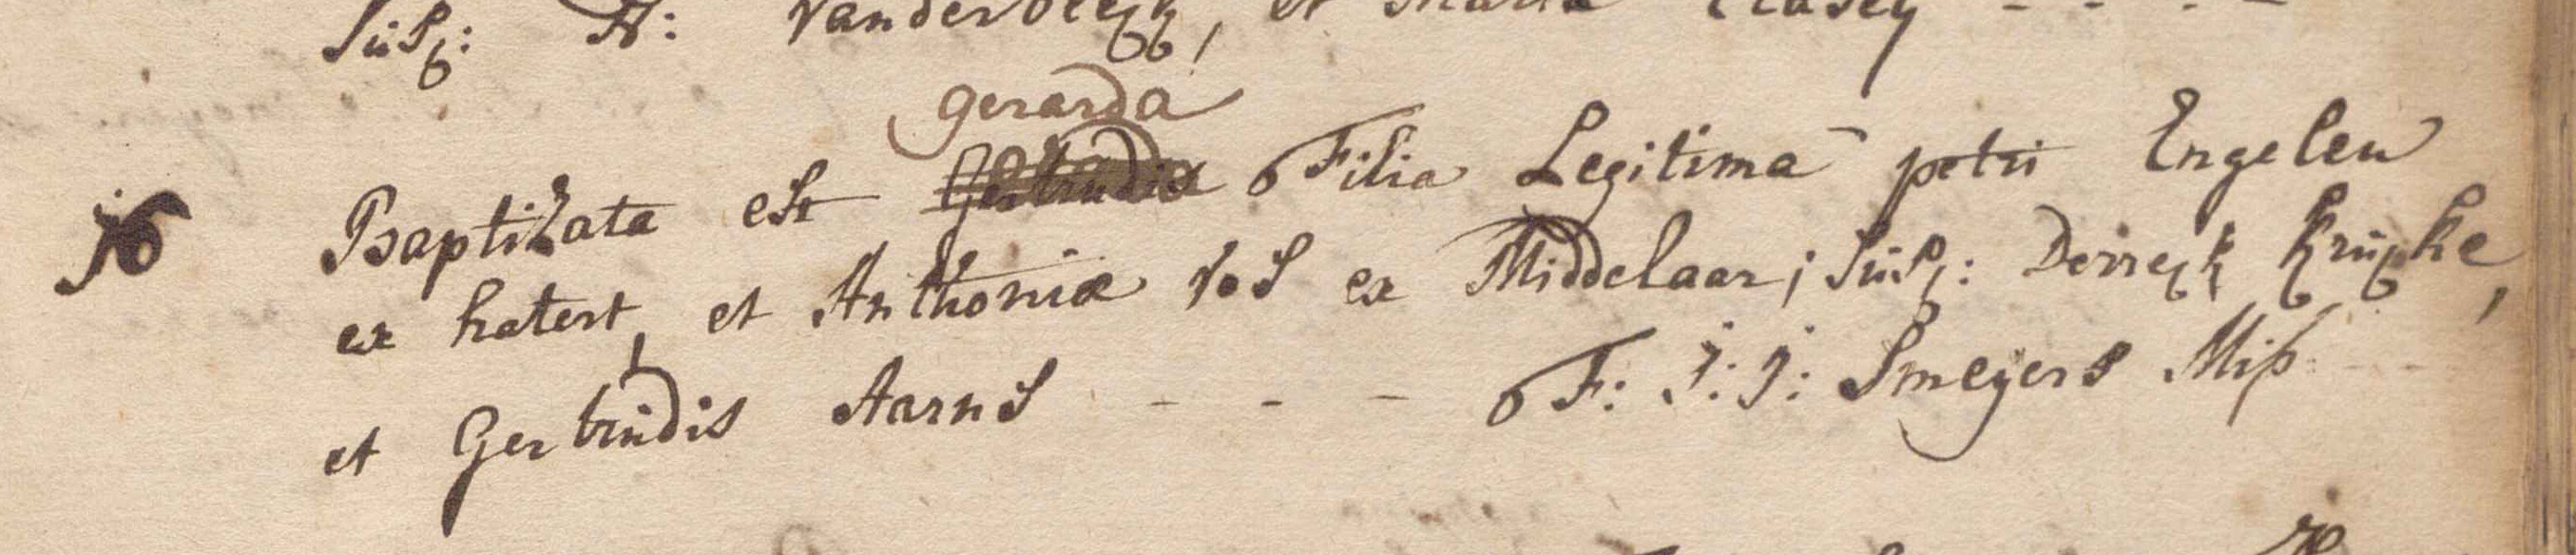 Susc: A: Vanderbleyk, et Maria Clasen - - - -
gerarda
16 Baptizata est Gertrudis Filia Legitima petri Engelen
ex hatert, et Anthoniæ Vos ex Middelaar; Susc: Derrek Krupke,
et Gertrudis Aarns - - - F: J: J: Smeyers Miss